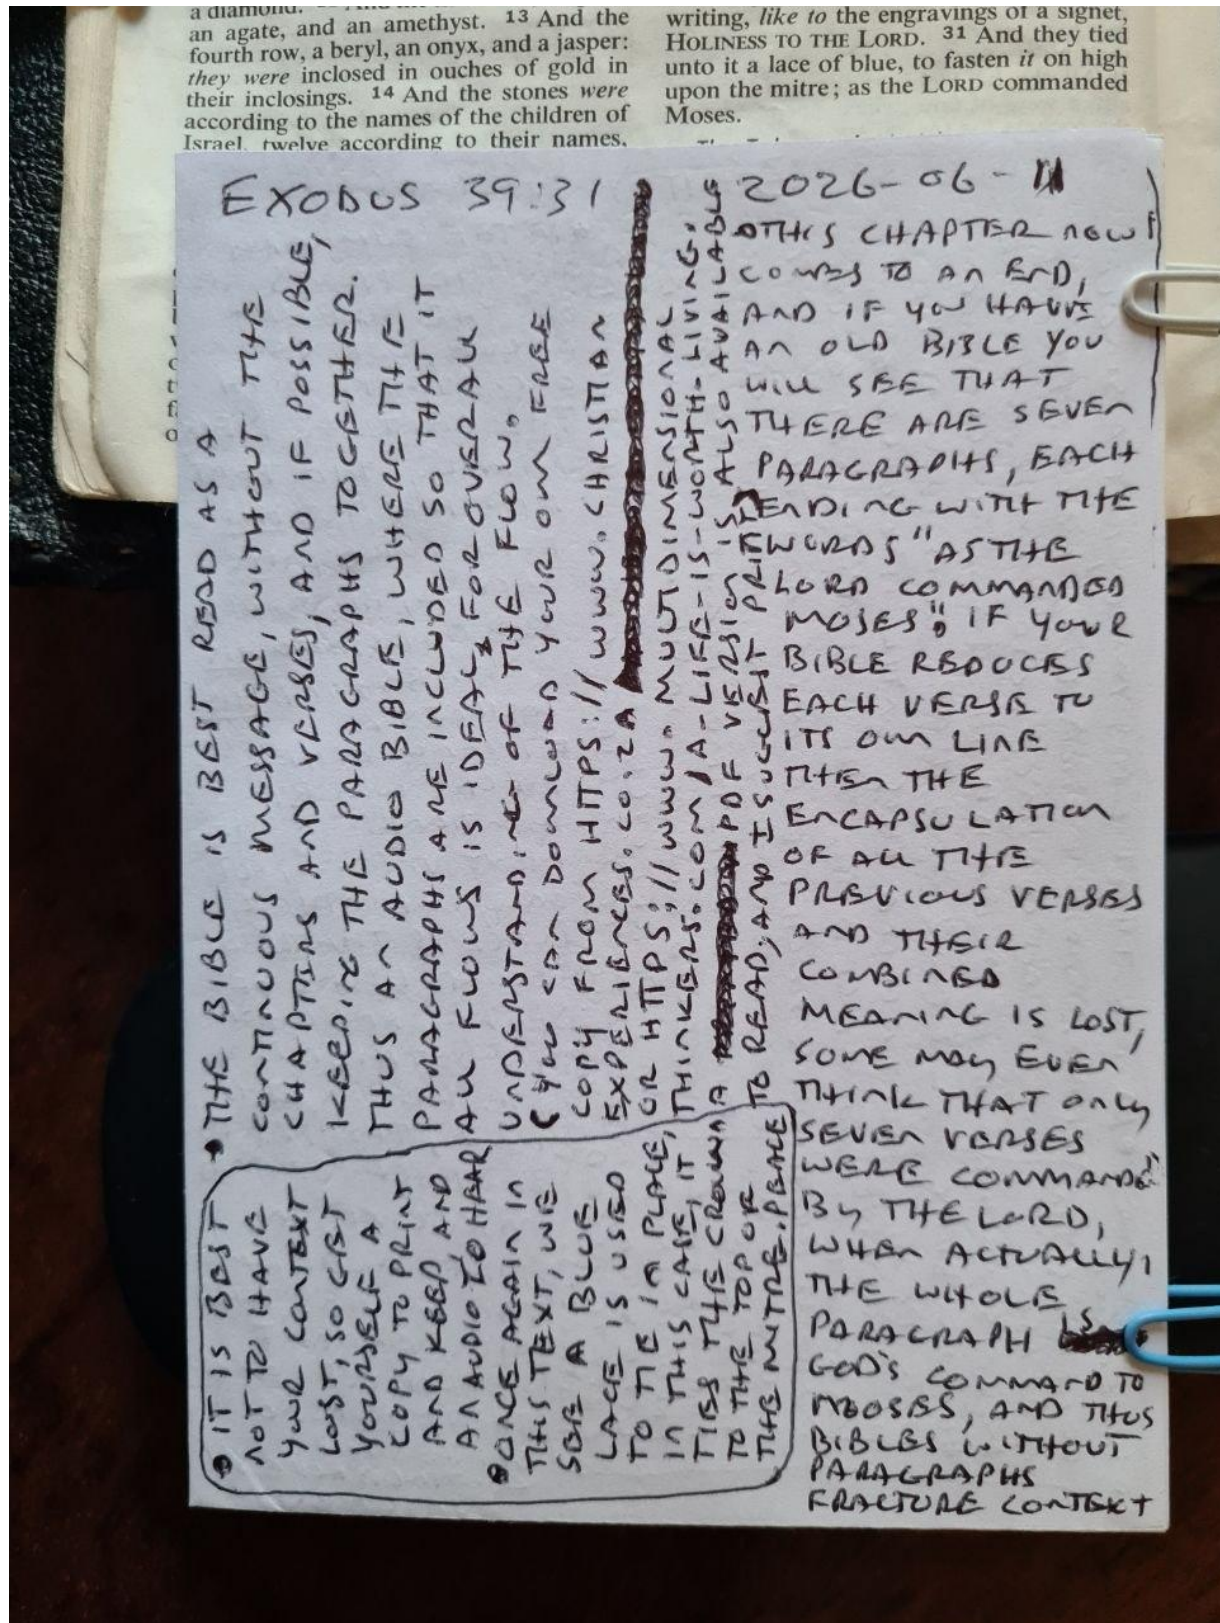 a diamond.
an agate, and an amethyst. 13 And the
fourth row, a beryl, an onyx, and a jasper:
they were inclosed in ouches of gold in
their inclosings. 14 And the stones were
according to the names of the children of
Israel, twelve according to their names,
writing, like to the engravings of a signet,
HOLINESS TO THE LORD. 31 And they tied
unto it a lace of blue, to fasten it on high
upon the mitre; as the LORD commanded
Moses.
EXODUS 39:31
2026-06-11
THIS CHAPTER NOW
COMES TO AN END,
AND IF YOU HAVE
AN OLD BIBLE YOU
WILL SEE THAT
THERE ARE SEVEN
PARAGRAPHS, EACH
ENDING WITH THE
WORDS "AS THE
LORD COMMANDED
MOSES". IF YOUR
BIBLE REDUCES
EACH VERSE TO
ITS OWN LINE
THEN THE
ENCAPSULATION
OF ALL THE
PREVIOUS VERSES
AND THEIR
COMBINED
MEANING IS LOST,
SOME MAY EVEN
THINK THAT ONLY
SEVEN VERSES
WERE COMMANDED
BY THE LORD,
WHEN ACTUALLY,
THE WHOLE
PARAGRAPH IS
GOD'S COMMAND TO
MOSES, AND THUS
BIBLES WITHOUT
PARAGRAPHS
FRACTURE CONTEXT
• THE BIBLE IS BEST READ AS A
CONTINUOUS MESSAGE, WITHOUT THE
CHAPTERS AND VERSES, AND IF POSSIBLE,
KEEPING THE PARAGRAPHS TOGETHER.
THUS AN AUDIO BIBLE, WHERE THE
PARAGRAPHS ARE INCLUDED SO THAT IT
ALL FLOWS IS IDEAL, FOR OVERALL
UNDERSTANDING OF THE FLOW.
(YOU CAN DOWNLOAD YOUR OWN FREE
COPY FROM HTTPS://WWW.CHRISTIAN
EXPERIENCES.CO.ZA
OR HTTPS://WWW.MULTIDIMENSIONAL
THINKERS.COM/A-LIFE-IS-WORTH-LIVING.
A PDF VERSION IS ALSO AVAILABLE
TO READ, AND I SUGGEST PRINT
• IT IS BEST
NOT TO HAVE
YOUR CONTEXT
LOST, SO GET
YOURSELF A
COPY TO PRINT
AND KEEP, AND
AN AUDIO TO HEAR
• ONCE AGAIN IN
THIS TEXT, WE
SEE A BLUE
LACE IS USED
TO TIE IN PLACE,
IN THIS CASE, IT
TIES THE CROWN
TO THE TOP OF
THE MITRE. PEACE